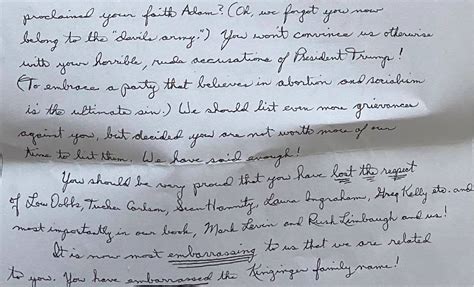 proclaimed your faith Adam? (Oh, we forgot you now
belong to the "devils army.") You won't convince us otherwise
with your horrible, rude accusations of President Trump!
(To embrace a party that believes in abortion and socialism
is the ultimate sin.) We should list even more grievances
against you, but decided you are not worth more of our
time to list them. We have said enough!
You should be very proud that you have lost the respect
of Lou Dobbs, Tucker Carlson, Sean Hannity, Laura Ingraham, Greg Kelly etc. and
most importantly in our book, Mark Levin and Rush Limbaugh and us!
It is now most embarrassing to us that we are related
to you. You have embarrassed the Kinzinger family name!